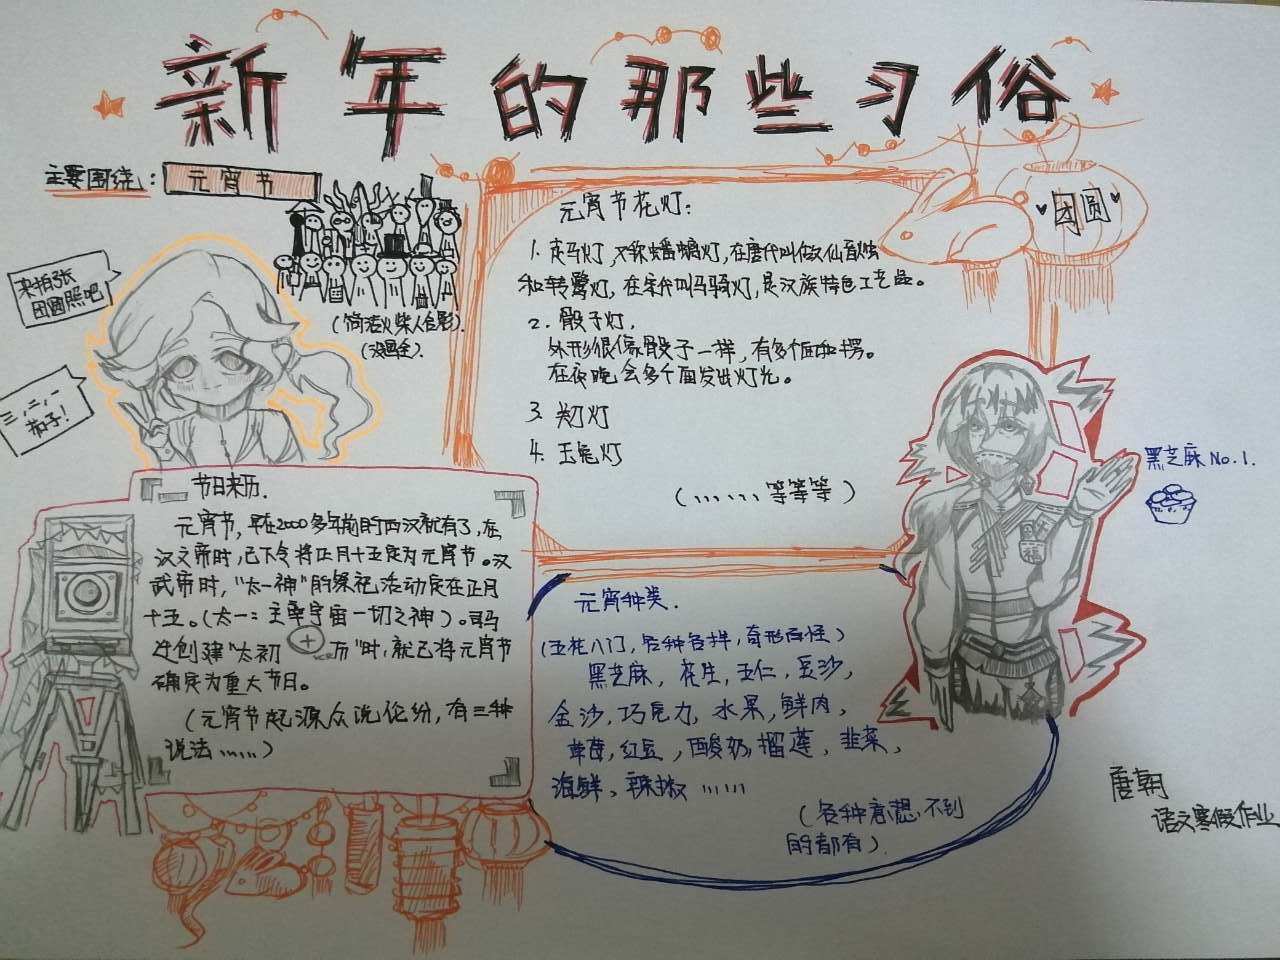 新年的那些习俗
主要围绕：元宵节
来拍张
团圆照吧
三，二，一
茄子！
（简洁火柴人合影）
（没画全）
元宵节花灯：
1. 走马灯，又称蟠螭灯，在唐代叫做仙音烛
和转鹭灯，在宋代叫马骑灯，是汉族特色工艺品。
2. 骰子灯，
外形很像骰子一样，有多个面和拐。
在夜晚会多个面发出灯光。
3. 灯
4. 玉兔灯
（……等等等）
团圆
福
黑芝麻No.1.
节日来历.
元宵节，早在2000多年前的西汉就有了，在
汉文帝时，已下令将正月十五定为元宵节。汉
武帝时，“太一神”的祭祀活动定在正月
十五。（太一：主宰宇宙一切之神）。司马
迁创建“太初历”时，就已将元宵节
确定为重大节日。
（元宵节起源众说纷纷，有三种
说法……）
元宵种类.
（五花八门，各种各样，奇形百怪）
黑芝麻，花生，五仁，豆沙，
金沙，巧克力，水果，鲜肉，
草莓，红豆，酸奶，榴莲，韭菜，
海鲜、辣椒……
（各种意想不到
的都有）.
唐朝
语文寒假作业